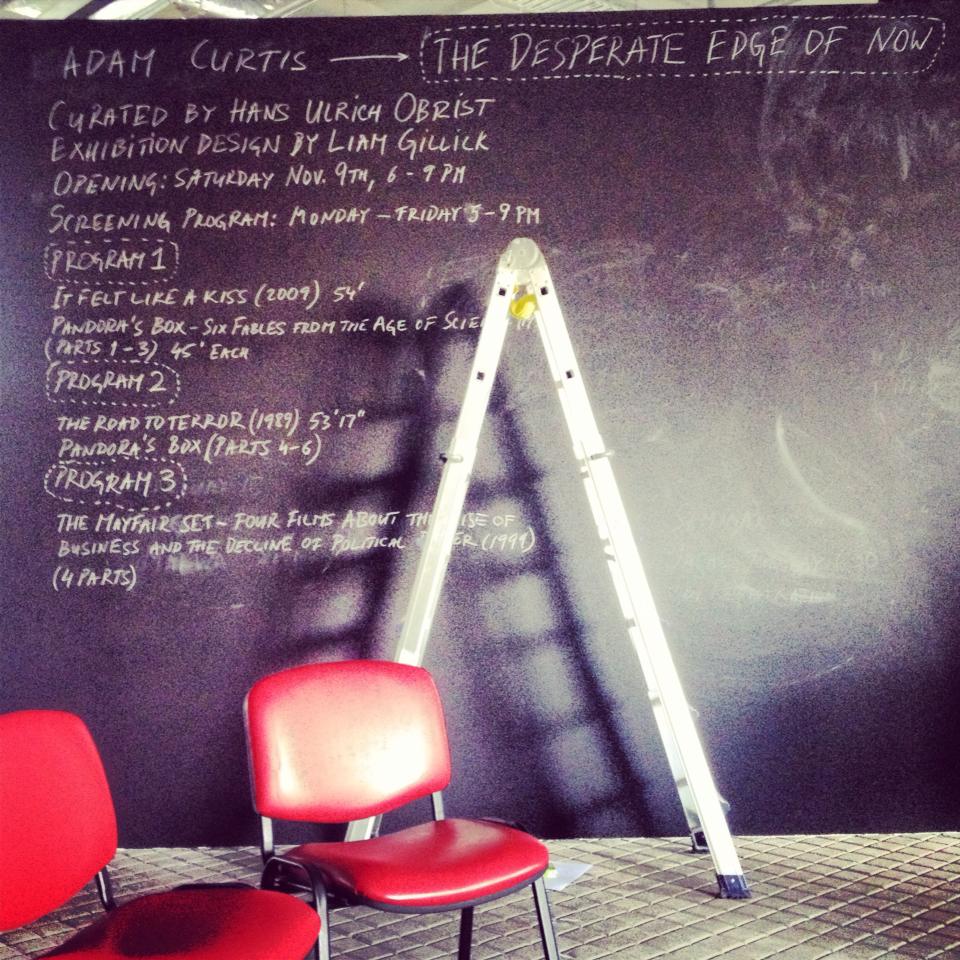 ADAM CURTIS → THE DESPERATE EDGE OF NOW
CURATED BY HANS ULRICH OBRIST
EXHIBITION DESIGN BY LIAM GILLICK
OPENING: SATURDAY NOV. 9TH, 6 - 9 PM
SCREENING PROGRAM: MONDAY - FRIDAY 5 - 9 PM
PROGRAM 1
IT FELT LIKE A KISS (2009) 54'
PANDORA'S BOX - SIX FABLES FROM THE AGE OF
(PARTS 1 - 3) 45' EACH
PROGRAM 2
THE ROAD TO TERROR (1989) 53'17"
PANDORA'S BOX (PARTS 4-6)
PROGRAM 3
THE MAYFAIR SET - FOUR FILMS ABOUT OF
BUSINESS AND THE DECLINE OF POLITICAL (1999)
(4 PARTS)